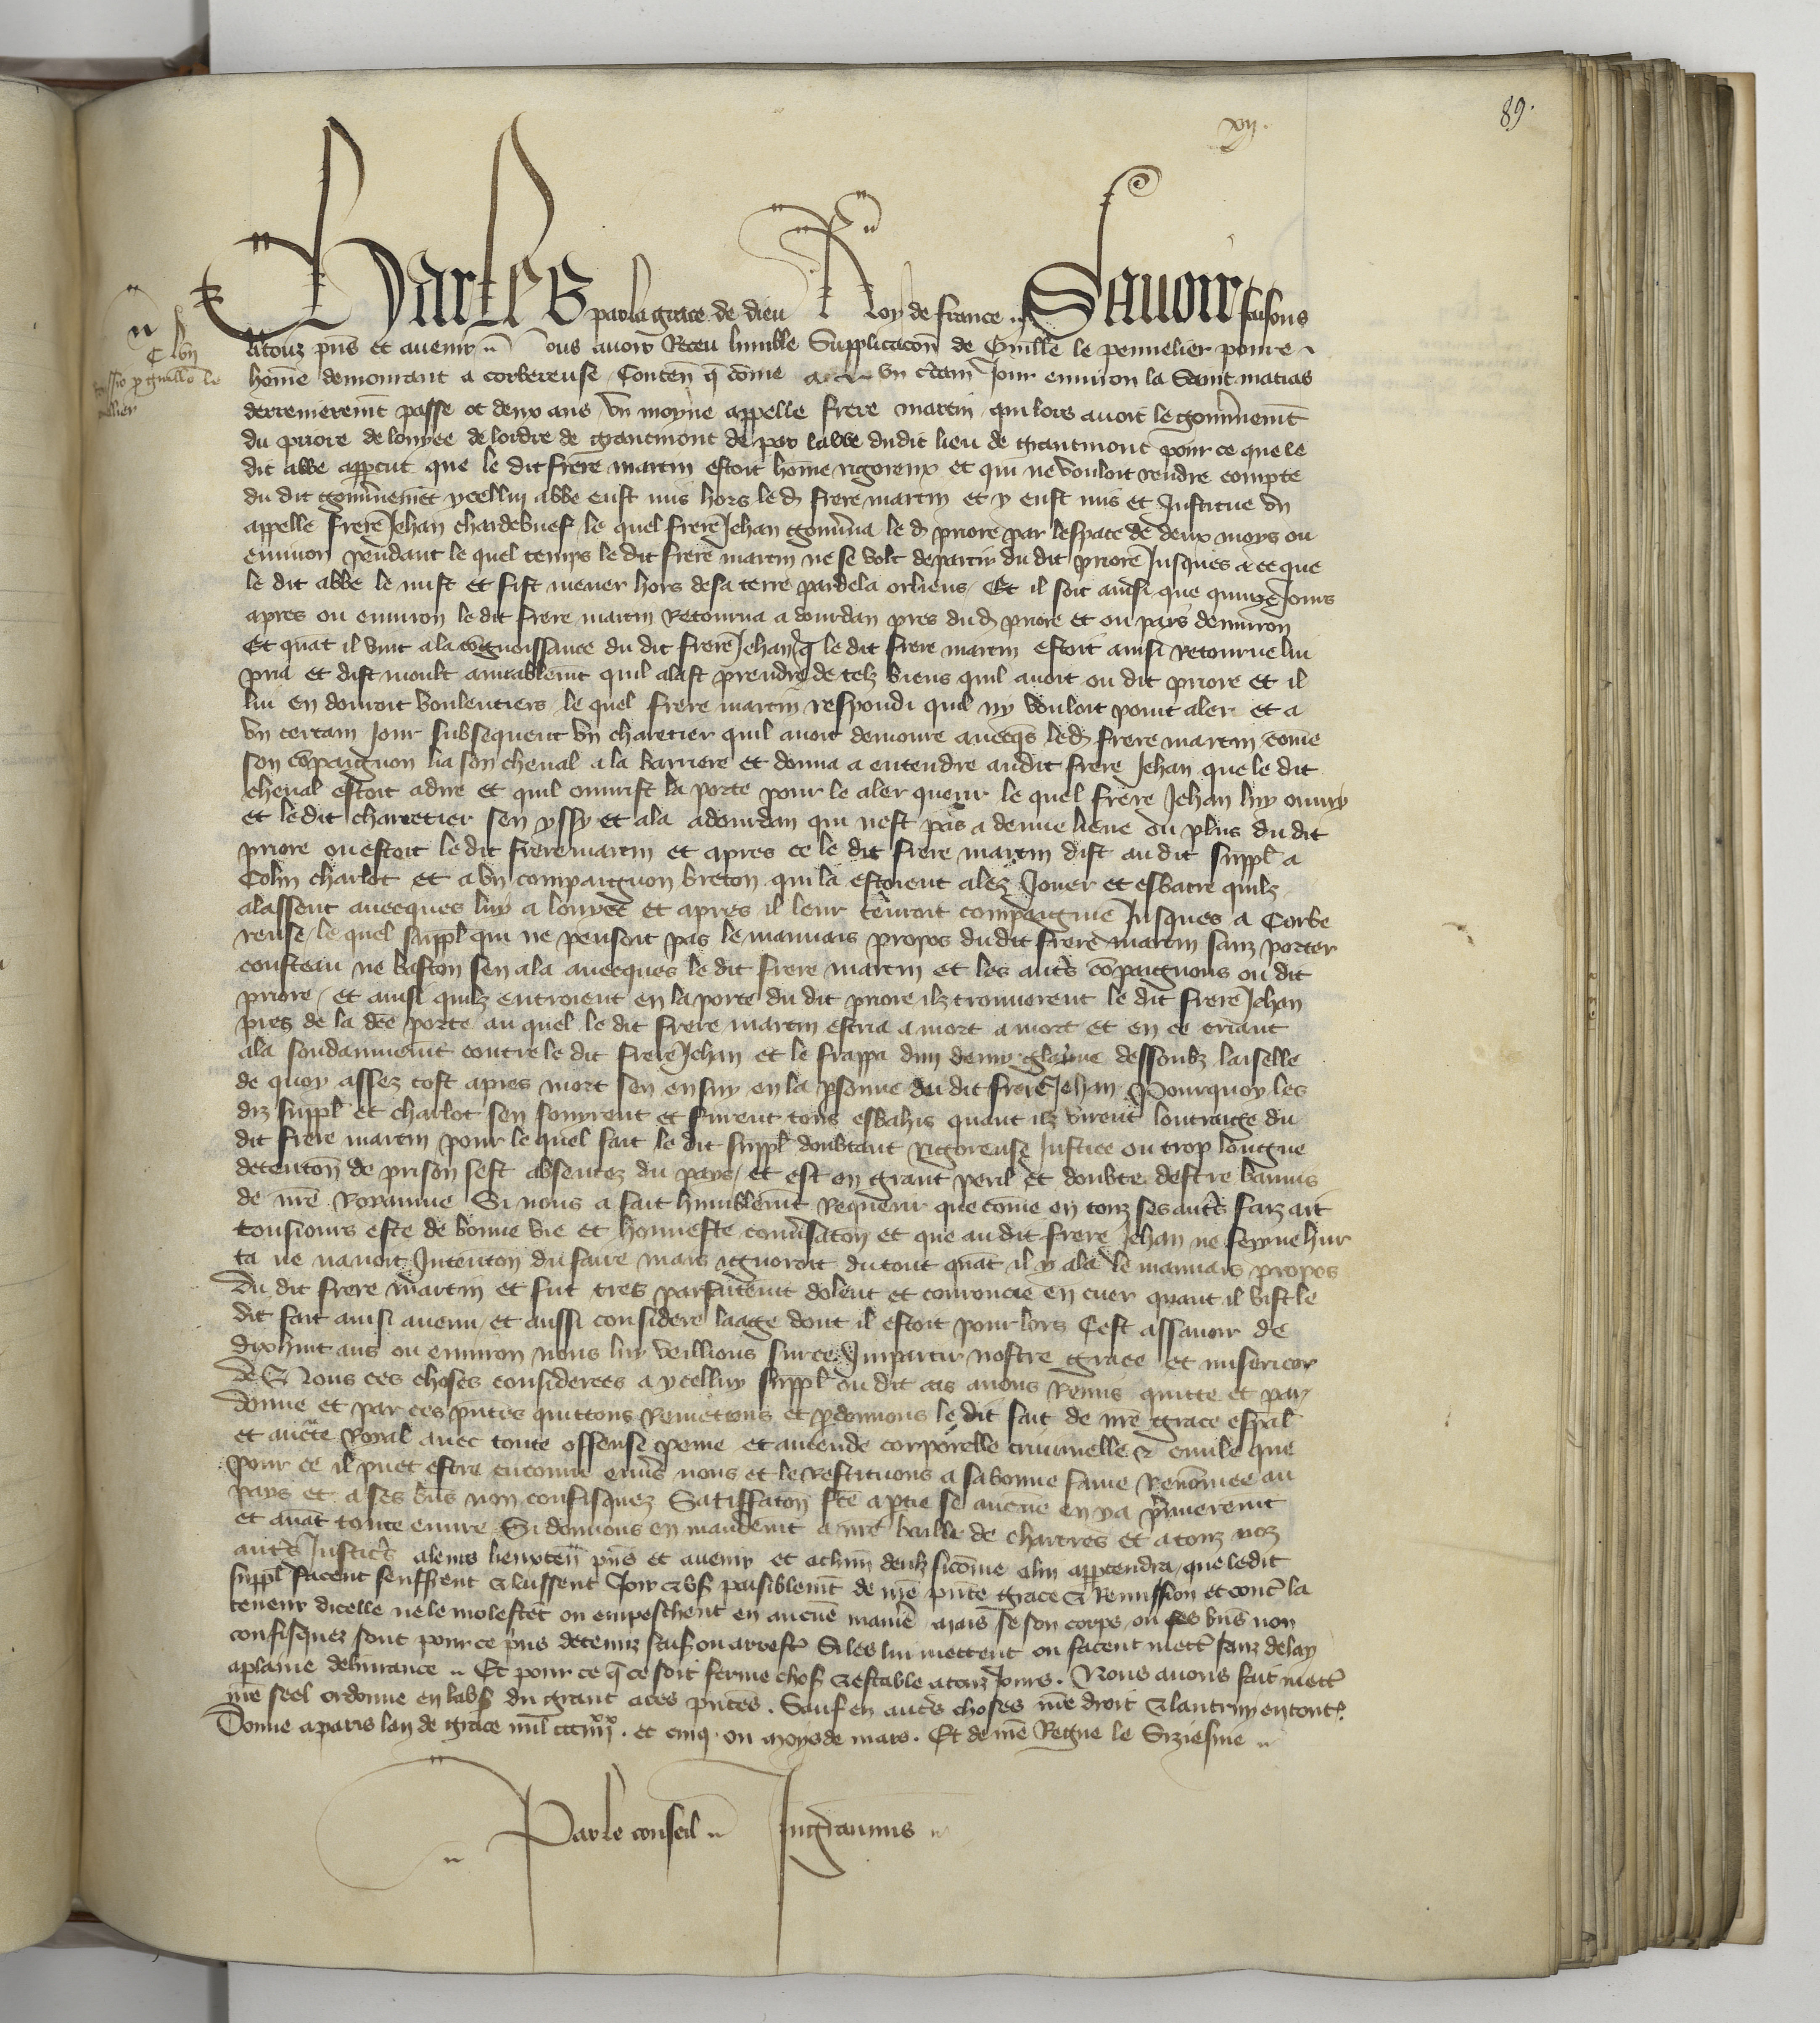 xvij.
89.
Charles par la grace de dieu Roy de france Sauoir faisons
atouz p̄ns et auenir Nous auoir Receu humble Supplicacōn de Guill̄e le pennelier poure
hom̄e demourant a corbereuse Conten̄ q̄ com̄e a vn c̄tain Jour enuiron la Saint matias
derrenieremēt passe ot deux ans vn moyne appelle frere martin qui lors auoit le gouūnemēt
du priore de louyee de lordre de grantmont de par labbe dudit lieu de grantmont pour ce que le
dit abbe appercut que le dit frere martin estoit hom̄e rigoreux et qui ne vouloit rendre compte
du dit gouūnemēt ycellui abbe eust mis hors le d̄ frere martin et y eust mis et Institue vn
appelle frere Jehan chardebuef le quel frere Jehan gouūna le d̄ priore par lespace de deux moys ou
enuiron pendant le quel temps le dit frere martin ne se volt departir du dit priore Jusques a ce que
le dit abbe le mist et fist mener hors de sa terre par dela orliens Et il soit ainsi que quinze Jours
apres ou enuiron le dit frere martin Retourna a dourdan pres du d̄ priore et ou pais denuiron
Et quāt il vint a la cōgnoissance du dit frere Jehan q̄ le dit frere martin estoit ainsi retourne lui
pria et dist moult amiablemēt quil alast prendre de telz biens quil auoit ou dit priore et il
lui en donroit voulentiers le quel frere martin respondi quil ny vouloit point aler et a
vn certain Jour subsequent vn charetier quil auoit demoure auecqs̄ le d̄ frere martin com̄e
son cōpaignon lia son cheual a la barriere et donna a entendre audit frere Jehan que le dit
cheual estoit adire et quil ouurist la porte pour le aler querir le quel frere Jehan luy ouury
et le dit charretier sen yssy et ala a dourdan qui nest pas a demie lieue ou plus du dit
priore ou estoit le dit frere martin et apres ce le dit frere martin dist au dit suppl̄ a
Colin charlot et a vn compaignon breton qui la estoient alez Jouer et esbatre quilz
alassent auecques luy a louyee et apres il leur tenroit compaignie Jusques a Corbe
reuse le quel suppl̄ qui ne pensoit pas le mauuais propos du dit frere martin sanz porter
cousteau ne baston sen ala auecques le dit frere martin et les autr̄s cōpaignons ou dit
priore et ainsi quilz entroient en la porte du dit priore ilz trouuerent le dit frere Jehan
pres de la dc̄e porte au quel le dit frere martin escria a mort a mort et en ce criant
ala soudainnemēt contre le dit frere Jehan et le frappa dun demy glaiue dessoubz laiselle
de quoy assez tost apres mort sen ensuy en la p̄sonne du dit frere Jehan Pourquoy les
diz suppl̄ et charlot sen fouyrent et furent tous esbahis quant ilz virent loutraige du
dit frere martin pour le quel fait le dit suppl̄ doubtant rigoreuse Justice ou trop longue
detentōn de prison sest absentez du pays et est en grant peril et doubte destre bannis
de nr̄e Royaume Si nous a fait humblemēt Requerir que com̄e en touz ses autr̄s faiz ait
tousiours este de bonne vie et honneste conūsatōn et que au dit frere Jehan ne feyne hur
ta ne nauoit Intentōn du faire mais ignoroit du tout quāt il y ala le mauuais propos
du dit frere martin et fut tres parfaitemēt dolent et courroucie en cuer quant il vist le
dit fait ainsi auenu et aussi considere laage dont il estoit pour lors Cest assauoir de
dixhuit ans ou enuiron nous luy veillions sur ce Impartir nostre grace et misericor
de Et Nous ces choses considerees a ycelluy suppl̄ ou dit cas auons Remis quitte et par
donne et par ces p̄ntes quittons Remettons et p̄donnons le dit fait de nr̄e grace esp̄al
et auct̄e Royal auec toute offense peine et amende corporelle criminelle & ciuile que
pour ce il puet estre encouru enuers nous et le restituons a sa bonne fame Renōmee au
pays et a ses biēs non confisquez Satiffatōn fc̄e a p̄tie se aucune en y a p̄mieremt
et auāt toute euure Si donnons en mandemēt a nr̄e bailli de chartres et a touz noz
autr̄s Justic̄s a leurs lieuxten̄ p̄ns et auenir et a chūn deulz sicom̄e a lui appartendra que ledit
suppl̄ facent seuffrent & laissent Joir & vs̄ paisiblemēt de nr̄e p̄nte grace & Remission et cont̄ la
teneur dicelle ne le molestēt ou empeschent en aucune maniēre mais se son corps ou ses biēs non
confisquez sont pour ce pris detenuz saisiz ou arrest̄ Si les lui mettent ou facent mett̄ sanz delay
a plaine deliurance Et pour ce q̄ ce soit ferme chos̄ & estable a touz Jours. Nous auons fait mett̄
nr̄e seel ordonne en labs̄ du grant a ces p̄ntes. Sauf en autr̄s choses nr̄e droit & lautruy en tout̄.
Donne a paris lan de grace mil ccc iiijxx. et cinq. ou moys de mars. Et de nr̄e Regne le Siziesme
Par le conseil Ingrannus